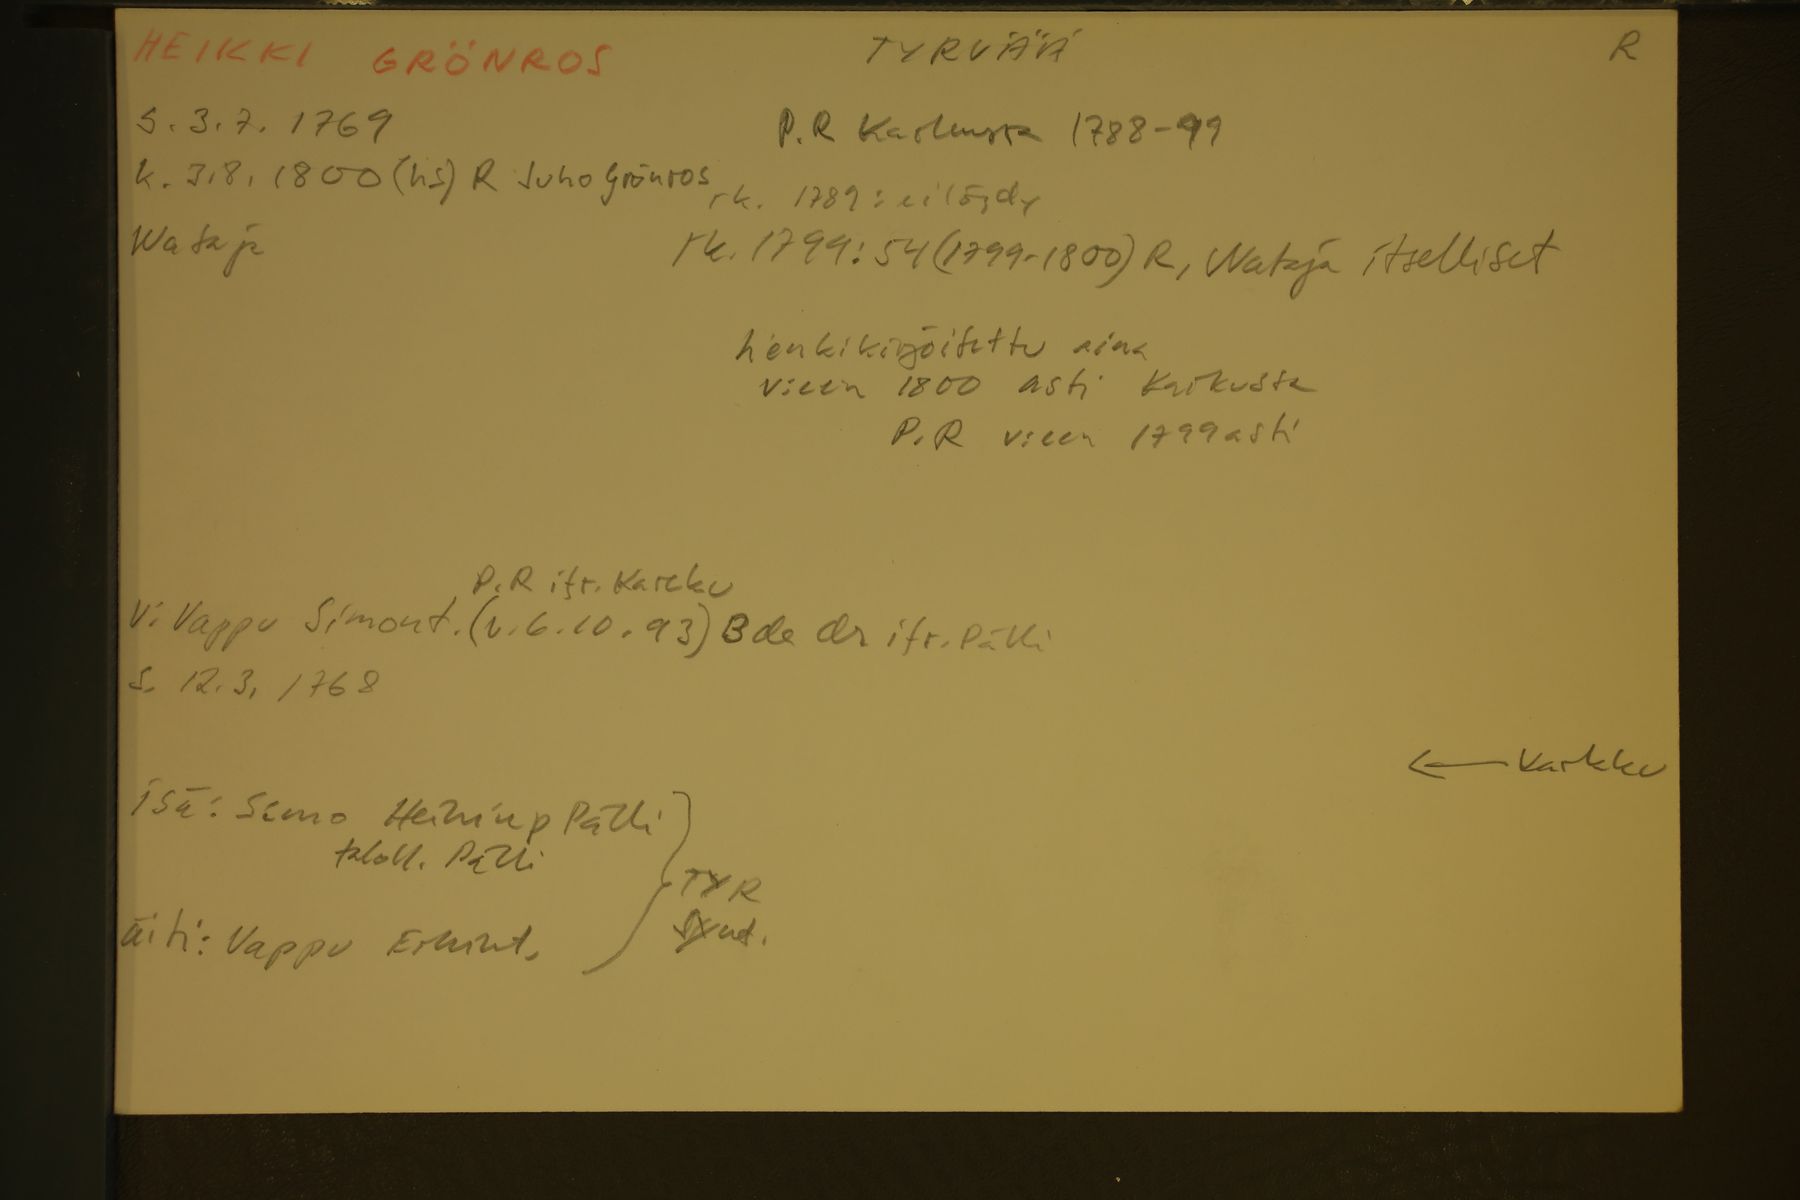 HEIKKI GRÖNROS TYRVÄÄ R
s. 3.7. 1769 P.R Karkussa 1788-99
k. 3.8. 1800 (hs) R Juho Grönros
rk. 1789: ei löydy
Wataja rk. 1799: 54 (1799-1800) R, Wataja itselliset
henkikirjoitettu aina
vuen 1800 asti Karkussa
P.R vuen 1799 asti
P.R ifr. Karcku
V: Vappu Simont. (v. 6.10.93) Bde dr ifr. Pätti
s. 12.3. 1768
← Karkku
isä: Simo Heikinp Pätti
taloll. Pätti
TYR
äiti: Vappu Erkint.